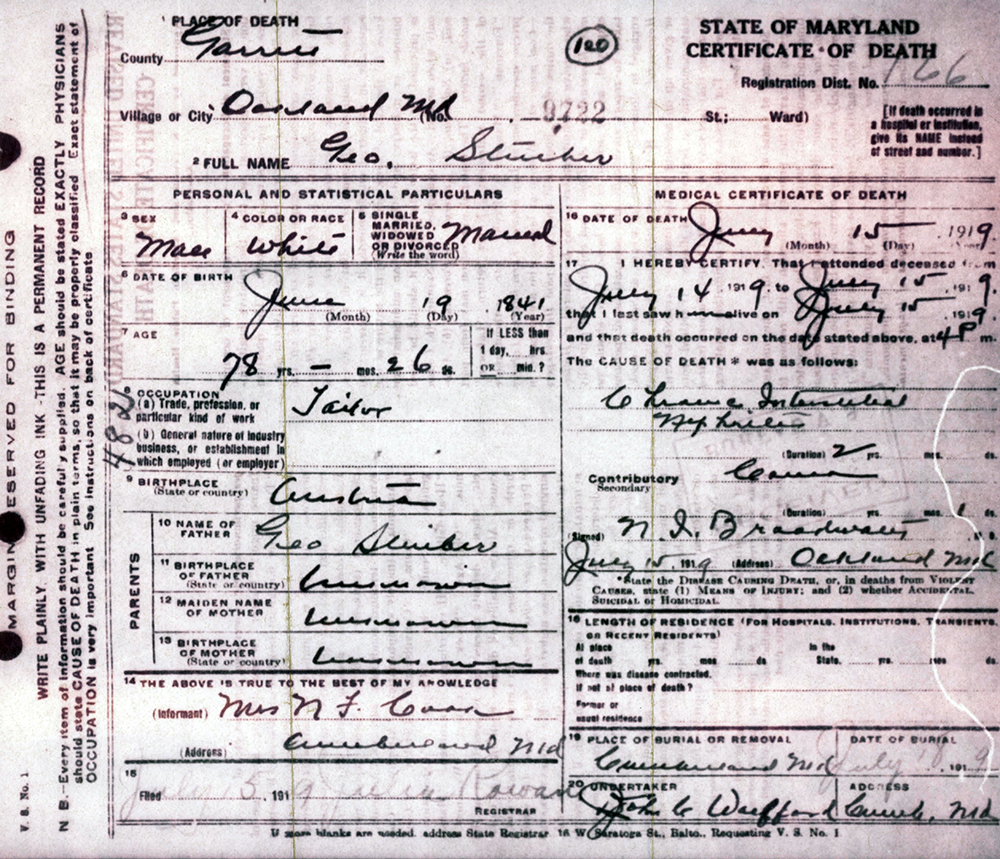 ¹ PLACE OF DEATH
County Garrett
120
STATE OF MARYLAND
CERTIFICATE OF DEATH
Registration Dist. No. 166
Village or City Oakland Md (No. 9722 St.; Ward)
[If death occurred in a hospital or institution, give its NAME instead of street and number.]
² FULL NAME Geo. Stuiber
PERSONAL AND STATISTICAL PARTICULARS
³ SEX
Male
⁴ COLOR OR RACE
White
⁵ SINGLE, MARRIED, WIDOWED OR DIVORCED
(Write the word)
Married
⁶ DATE OF BIRTH
June 19 1841
(Month) (Day) (Year)
⁷ AGE
78 yrs. – mos. 26 ds.
If LESS than
1 day, hrs.
OR min.?
⁸ OCCUPATION
(a) Trade, profession, or
particular kind of work
Tailor
(b) General nature of industry
business, or establishment in
which employed (or employer)
⁹ BIRTHPLACE
(State or country)
Austria
PARENTS
10 NAME OF
FATHER
Geo Stuiber
11 BIRTHPLACE
OF FATHER
(State or country)
unknown
12 MAIDEN NAME
OF MOTHER
unknown
13 BIRTHPLACE
OF MOTHER
(State or country)
unknown
14 THE ABOVE IS TRUE TO THE BEST OF MY KNOWLEDGE
(Informant) Mrs N F Cook
(Address) Cumberland Md
15
Filed July 15, 1919 Julia Rowan
REGISTRAR
MEDICAL CERTIFICATE OF DEATH
16 DATE OF DEATH
July 15 1919
(Month) (Day) (Year)
17 I HEREBY CERTIFY, That I attended deceased from
July 14 1919, to July 15, 1919,
that I last saw him alive on July 15, 1919,
and that death occurred on the date stated above, at 4 P m.
The CAUSE OF DEATH * was as follows:
Chronic Interstitial
Nephritis
(Duration) 2 yrs. mos. ds.
Contributory
Secondary
Coma
(Duration) yrs. mos. 1 ds.
(Signed)
July 15, 1919 (Address) Oakland Md
*State the DISEASE CAUSING DEATH, or, in deaths from VIOLENT
CAUSES, state (1) MEANS OF INJURY; and (2) whether ACCIDENTAL,
SUICIDAL or HOMICIDAL.
18 LENGTH OF RESIDENCE (FOR HOSPITALS, INSTITUTIONS, TRANSIENTS,
OR RECENT RESIDENTS)
At place
of death yrs. mos ds
In the
State, yrs. mos ds.
Where was disease contracted,
If not at place of death?
Former or
usual residence
19 PLACE OF BURIAL OR REMOVAL
Cumberland Md
DATE OF BURIAL
July 1919
20 UNDERTAKER
John C Wolford
ADDRESS
Cumb, Md
If more blanks are needed, address State Registrar, 16 W Saratoga St., Balto., Requesting V. S. No. 1
MARGIN RESERVED FOR BINDING
WRITE PLAINLY, WITH UNFADING INK -THIS IS A PERMANENT RECORD
N B.-Every item of information should be carefully supplied. AGE should be stated EXACTLY PHYSICIANS
should state CAUSE OF DEATH in plain terms, so that it may be properly classified Exact statement of
OCCUPATION is very important See instructions on back of certificate
V. S. No. 1